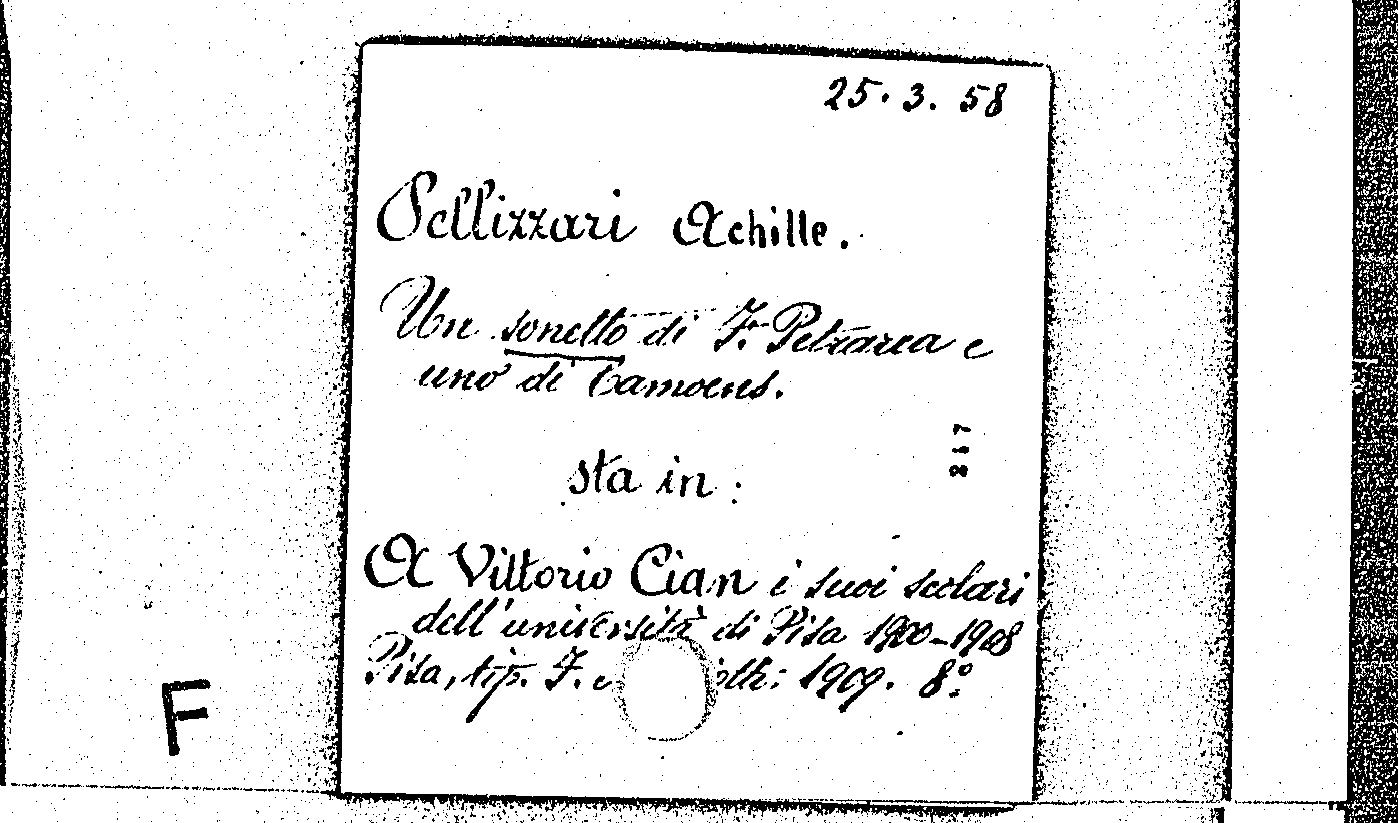 25. 3. 58
Pellizzari Achille.
Un sonetto di F. Petrarca e
uno di Camoens.
247
sta in :
A Vittorio Cian i suoi scolari
dell'università di Pisa 1900-1908
Pisa, tip. F. e oth: 1909. 8º.
F